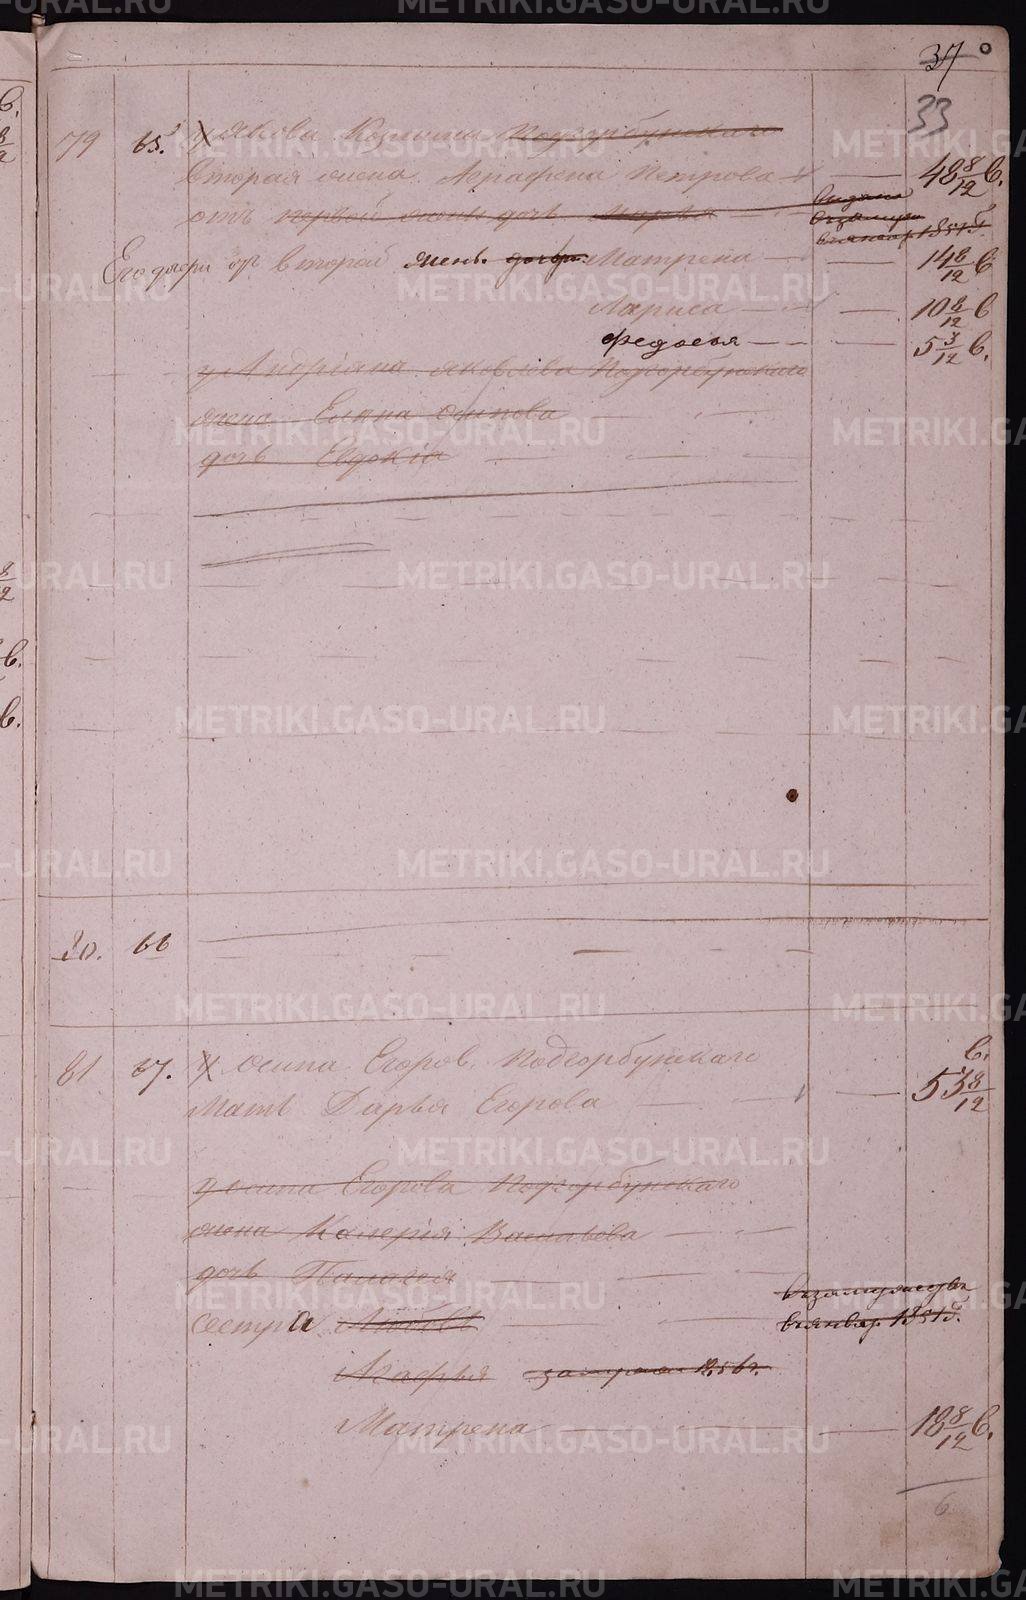 37
33
79 65. У Якова Козмина Подгорбунскаго
Вторая жена Аграфена Петрова 48 8/12 в.
отъ первой жены дочь Марья выдана взамуж въ январ 1851 г.
Его дочери отъ второй жены дочери Матрена 14 8/12 в
Лариса 10 8/12 в
Федосья 5 8/12 в.
У Андріана Яковлева Подгорбунскаго
жена Елена Осипова
дочь Евдокія
80. 66
81 67. У Осипа Егоров. Подгорбунскаго в.
Мать Дарья Егорова 53 8/12
У Осипа Егорова Подгорбунскаго
жена Валерія Васильева
дочь Палагея
Сестра Любовь в январ 1851 г.
Агафья
Матрена 18 8/12 в.
6
METRIKI.GASO-URAL.RU